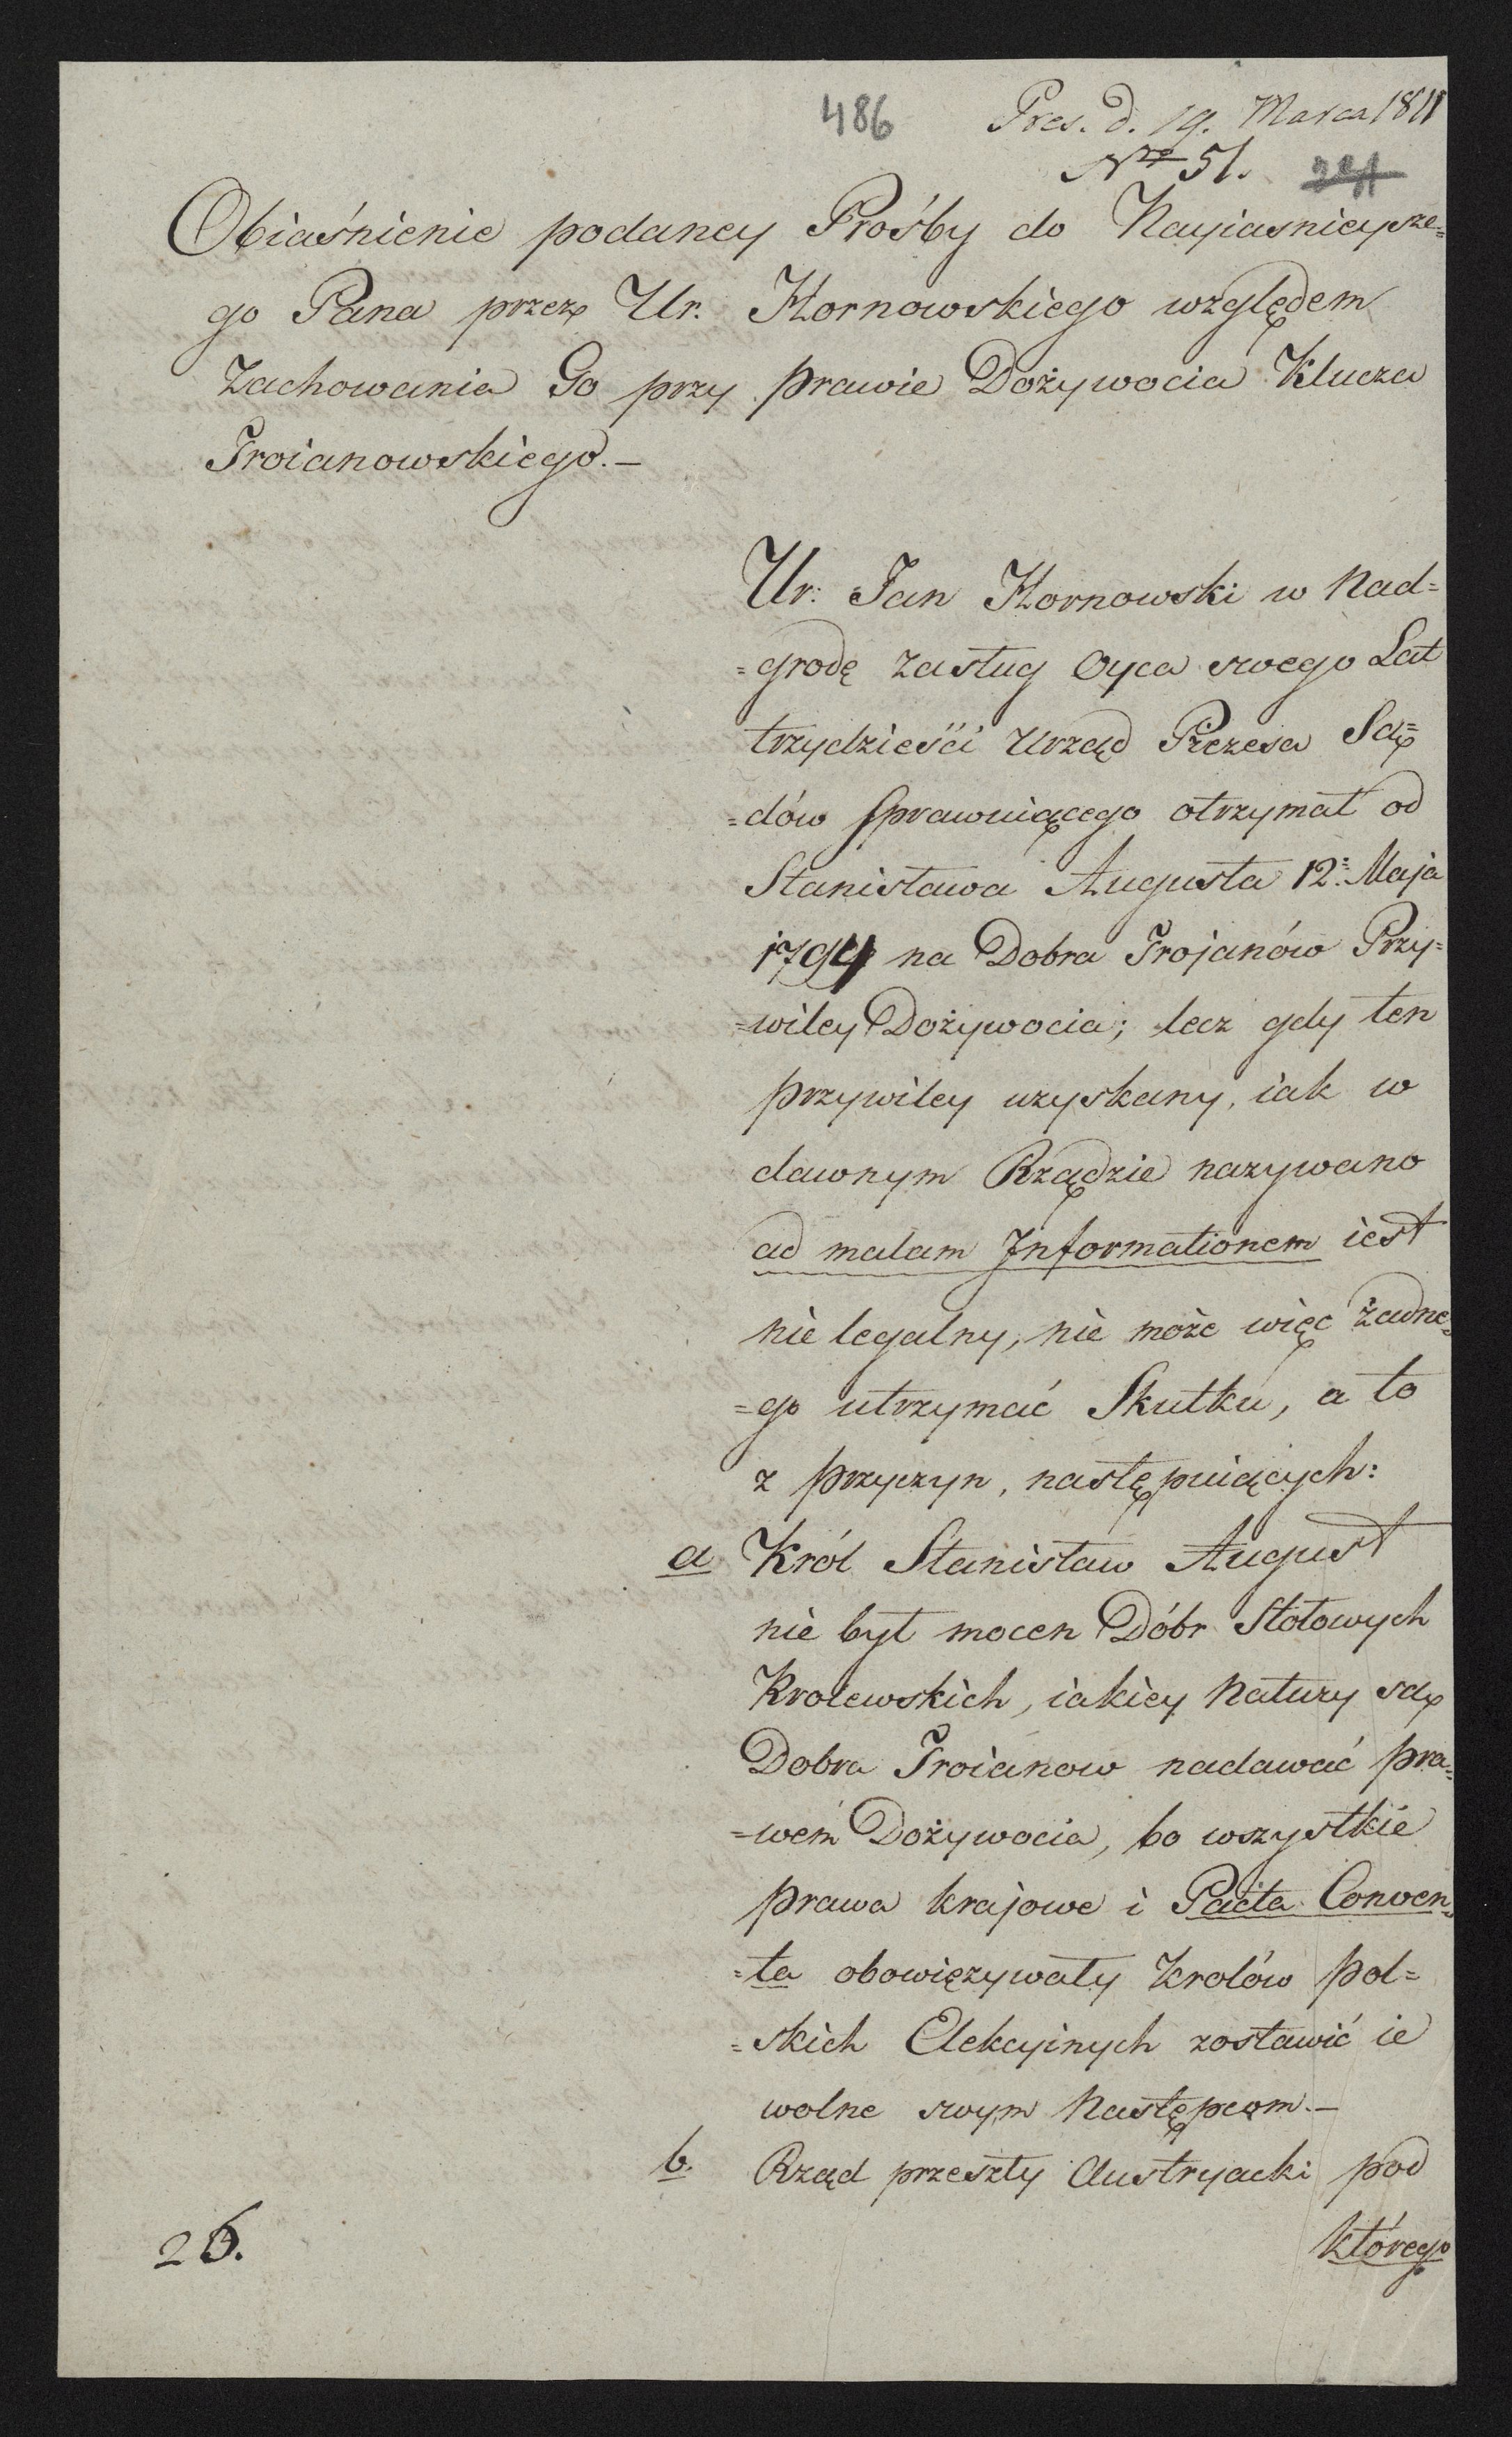 486 Pres. d. 19. Marca 1811
Nro 51.
Obiaśnienie podaney Prośby do Nayiasnieysze=
go Pana przez Ur. Hornowskiego względem
Zachowania Go przy prawie Dożywocia Klucza
Troianowskiego.—
Ur: Jan Hornowski w Nad=
=grodę zasług Oyca swego Lat
trzydzieści Urząd Prezesa Są=
=dów sprawuiącego otrzymał od
Stanisława Augusta 12: Maja
1794 na Dobra Trojanów Przy=
=wiley Dożywocia; lecz gdy ten
przywiley uzyskany, iak w
dawnym Rządzie nazywano
ad malam Informationem iest
nie legalny, nie może więc żadne=
=go utrzymać Skutku, a to
z przyczyn, następuiących:
a Król Stanisław August
nie był mocen Dóbr Stołowych
Krolewskich, iakiey Natury są
Dobra Troianow nadawać pra=
=wem Dożywocia, bo wszystkie
prawa krajowe i Pacta Conven=
=ta obowięzywały Krolów pol=
=skich Elekcyinych zostawić ie
wolne swym Następcom.—
b. Rząd przeszły Austryacki pod
którego
26.